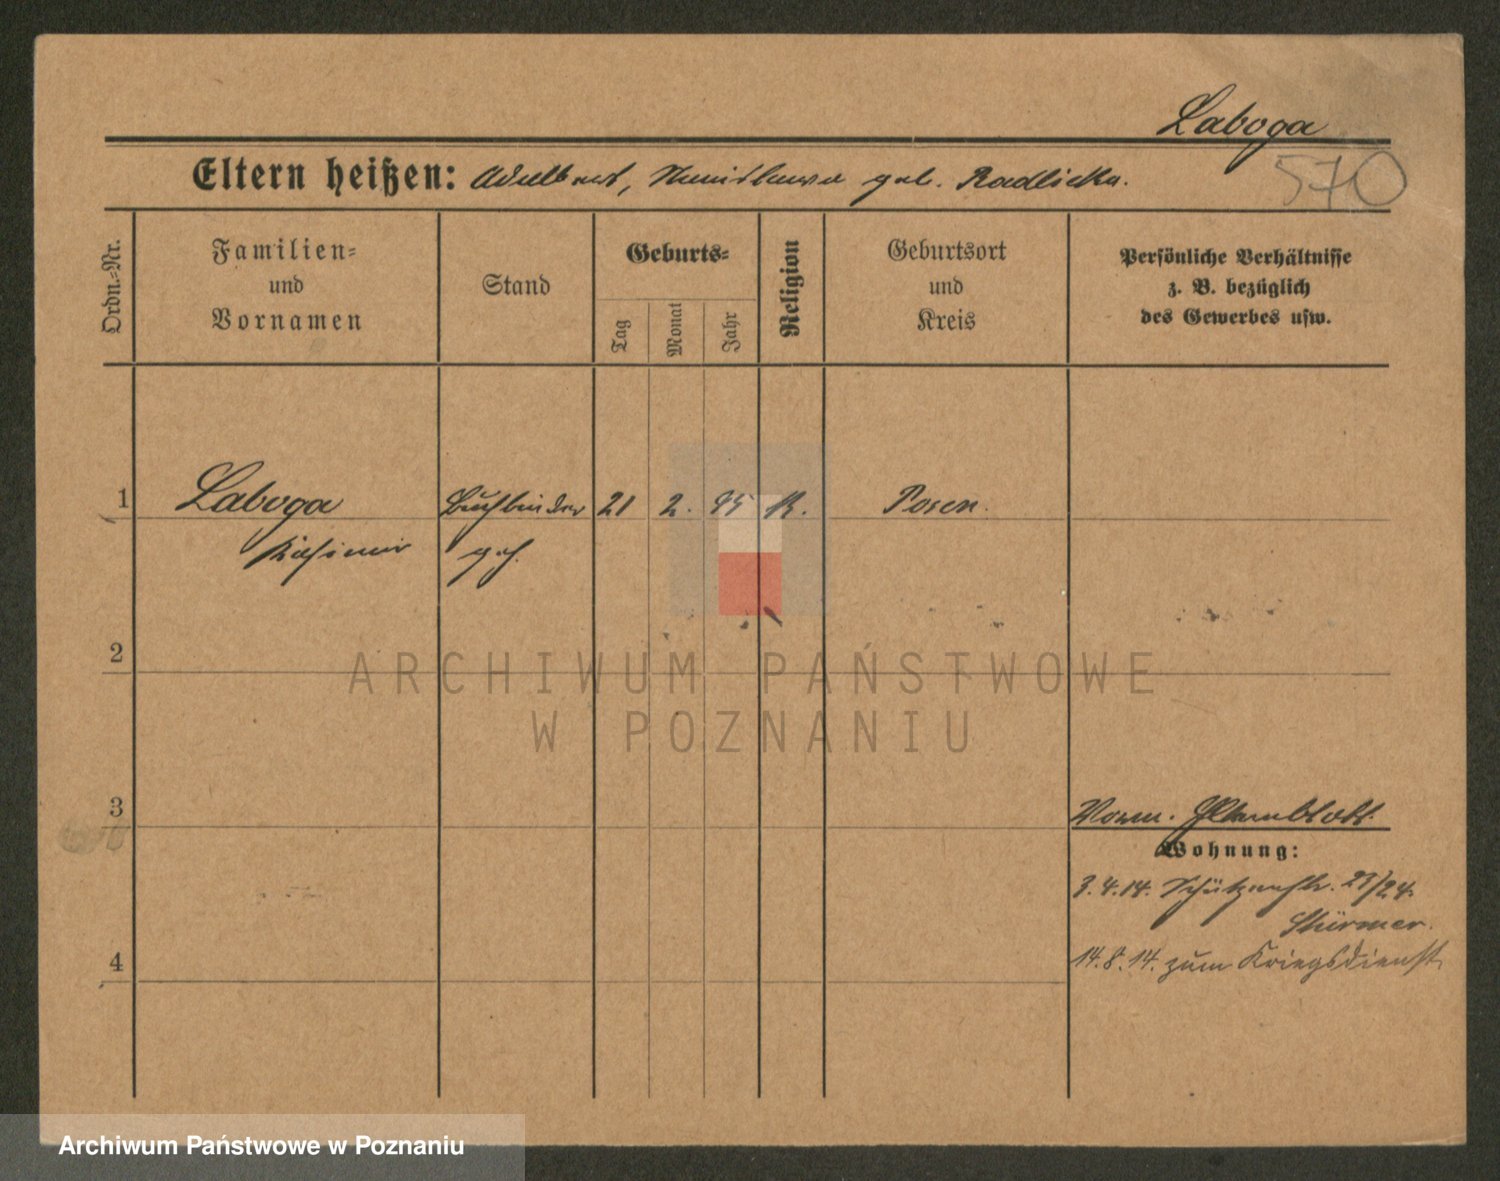 Laboga
570
Eltern heißen: Adalbert, Stanislawa geb. Radlicka.
Ordn.-Nr.
Familien- und Vornamen
Stand
Geburts-
Tag
Monat
Jahr
Religion
Geburtsort und Kreis
Persönliche Verhältnisse
z. B. bezüglich
des Gewerbes usw.
1 Laboga Buchbinder 21 2. 95 K. Posen.
Kasimir geh.
2
3
Vorm.
Wohnung:
3.4.14. Schützenstr. 23/24.
Stürmer.
4
14.8.14. zum Kriegsdienst
ARCHIWUM PAŃSTWOWE
W POZNANIU
Archiwum Państwowe w Poznaniu